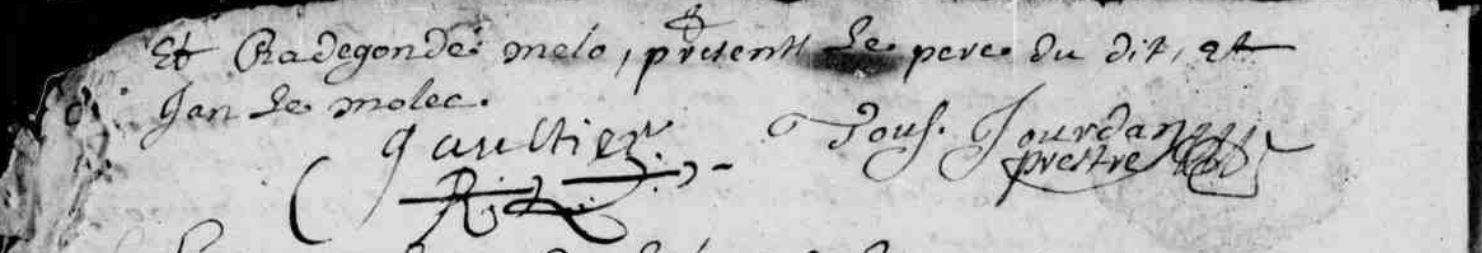 Et Radegonde melo, present le pere du dit, et
Jan le molec.
Gaultier Tous. Jourdan
R. prestre